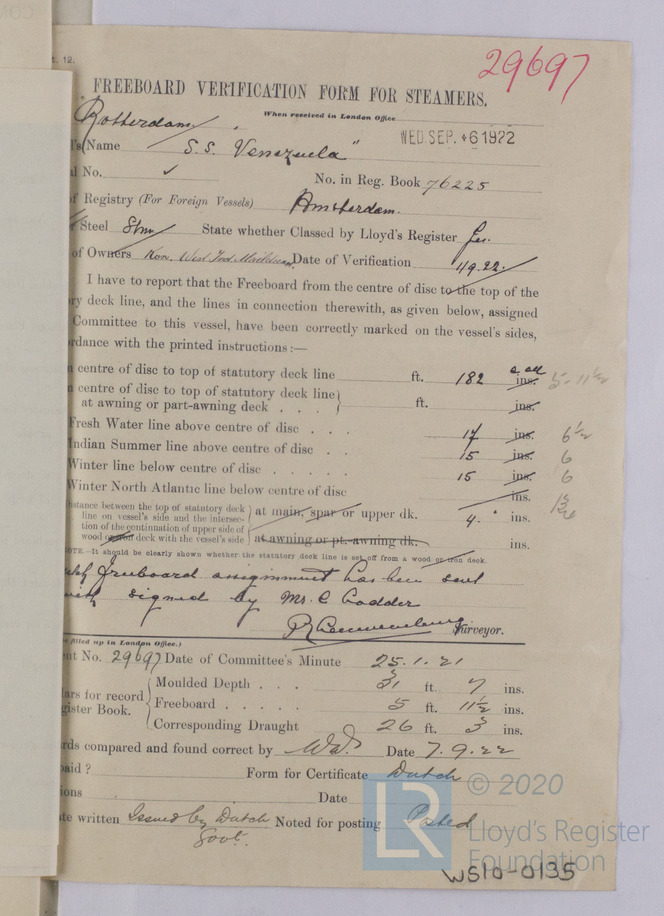 t. 12.
29697
FREEBOARD VERIFICATION FORM FOR STEAMERS.
When received in London Office
Rotterdam
WED SEP. +6 1922
l's Name "S.S. Venezuela"
al No. ✓ No. in Reg. Book 76225
of Registry (For Foreign Vessels) Amsterdam.
r Steel Stm State whether Classed by Lloyd's Register Yes.
of Owners Kon. West Ind. Maildienst Date of Verification 1/9.22.
I have to report that the Freeboard from the centre of disc to the top of the
ry deck line, and the lines in connection therewith, as given below, assigned
Committee to this vessel, have been correctly marked on the vessel's sides,
rdance with the printed instructions:—
n centre of disc to top of statutory deck line ft. 182 ins. 5-11½
n centre of disc to top of statutory deck line
at awning or part-awning deck . . . ft. ins.
Fresh Water line above centre of disc . . . 17 ins. 6½
Indian Summer line above centre of disc . . 15 ins. 6
Winter line below centre of disc . . . . . 15 ins. 6
Winter North Atlantic line below centre of disc ins.
istance between the top of statutory deck
line on vessel's side and the intersec-
tion of the continuation of upper side of
wood or iron deck with the vessel's side
at main, spar or upper dk. 4. ins.
at awning or pt. awning dk. ins.
NOTE.—It should be clearly shown whether the statutory deck line is set off from a wood or iron deck.
freeboard assignment has been sent
signed by Mr. C
Surveyor.
e filled up in London Office.)
ent No. 29697 Date of Committee's Minute 25.1.21
lars for record
gister Book.
Moulded Depth . . . 31 ft. 7 ins.
Freeboard . . . . . 5 ft. 11½ ins.
Corresponding Draught 26 ft. 3 ins.
rds compared and found correct by Date 7.9.22
paid ? Form for Certificate Dutch
ions Date
ate written Issued by Dutch Govt. Noted for posting Posted
© 2020
LR
Lloyd's Register
Foundation
WS10-0135